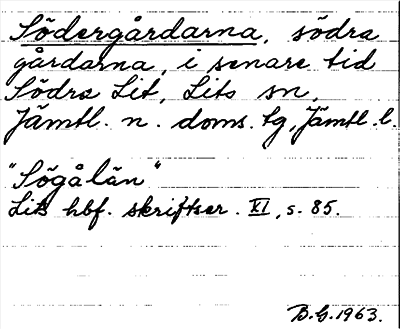 Södergårdarna, södra
gårdarna, i senare tid
Södra Lit, Lits sn,
Jämtl. n. doms. tg, Jämtl. l.
"Sögålän"
Lits hbf. skrifter. XI, s. 85.
B.G. 1963.